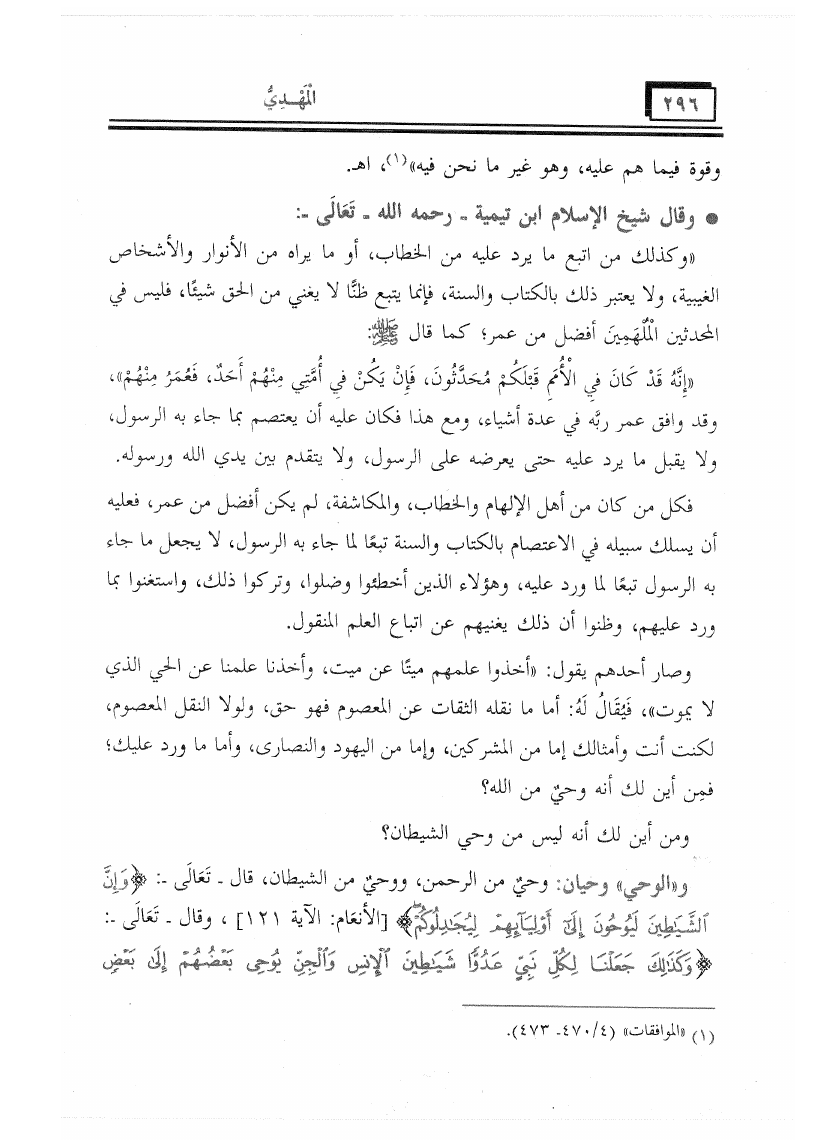 ٢٩٦
الْمَهْـدِيُّ
وقوة فيما هم عليه، وهو غير ما نحن فيه»(١)، اهـ.
● وقال شيخ الإسلام ابن تيمية ـ رحمه الله ـ تَعَالَى ـ:
«وكذلك من اتبع ما يرد عليه من الخطاب، أو ما يراه من الأنوار والأشخاص
الغيبية، ولا يعتبر ذلك بالكتاب والسنة، فإنما يتبع ظنًّا لا يغني من الحق شيئًا، فليس في
المحدثين الْمُلْهَمِينَ أفضل من عمر؛ كما قال ﷺ:
«إِنَّهُ قَدْ كَانَ فِي الْأُمَمِ قَبْلَكُمْ مُحَدَّثُونَ، فَإِنْ يَكُنْ فِي أُمَّتِي مِنْهُمْ أَحَدٌ، فَعُمَرُ مِنْهُمْ»،
وقد وافق عمر ربَّه في عدة أشياء، ومع هذا فكان عليه أن يعتصم بما جاء به الرسول،
ولا يقبل ما يرد عليه حتى يعرضه على الرسول، ولا يتقدم بين يدي الله ورسوله.
فكل من كان من أهل الإلهام والخطاب، والمكاشفة، لم يكن أفضل من عمر، فعليه
أن يسلك سبيله في الاعتصام بالكتاب والسنة تبعًا لما جاء به الرسول، لا يجعل ما جاء
به الرسول تبعًا لما ورد عليه، وهؤلاء الذين أخطئوا وضلوا، وتركوا ذلك، واستغنوا بما
ورد عليهم، وظنوا أن ذلك يغنيهم عن اتباع العلم المنقول.
وصار أحدهم يقول: «أخذوا علمهم ميتًا عن ميت، وأخذنا علمنا عن الحي الذي
لا يموت»، فَيُقَالُ لَهُ: أما ما نقله الثقات عن المعصوم فهو حق، ولولا النقل المعصوم،
لكنت أنت وأمثالك إما من المشركين، وإما من اليهود والنصارى، وأما ما ورد عليك؛
فمِن أين لك أنه وحيٌ من الله؟
ومن أين لك أنه ليس من وحي الشيطان؟
و«الوحي» وحيان: وحيٌ من الرحمن، ووحيٌ من الشيطان، قال ـ تَعَالَى ـ: ﴿وَإِنَّ
ٱلشَّيَٰطِينَ لَيُوحُونَ إِلَىٰٓ أَوْلِيَآئِهِمْ لِيُجَٰدِلُوكُمْ﴾ [الأنعَام: الآية ١٢١]، وقال ـ تَعَالَى ـ:
﴿وَكَذَٰلِكَ جَعَلْنَا لِكُلِّ نَبِيٍّ عَدُوًّا شَيَٰطِينَ ٱلْإِنسِ وَٱلْجِنِّ يُوحِى بَعْضُهُمْ إِلَىٰ بَعْضٍ
(١) «الموافقات» (٤/ ٤٧٠ـ ٤٧٣).